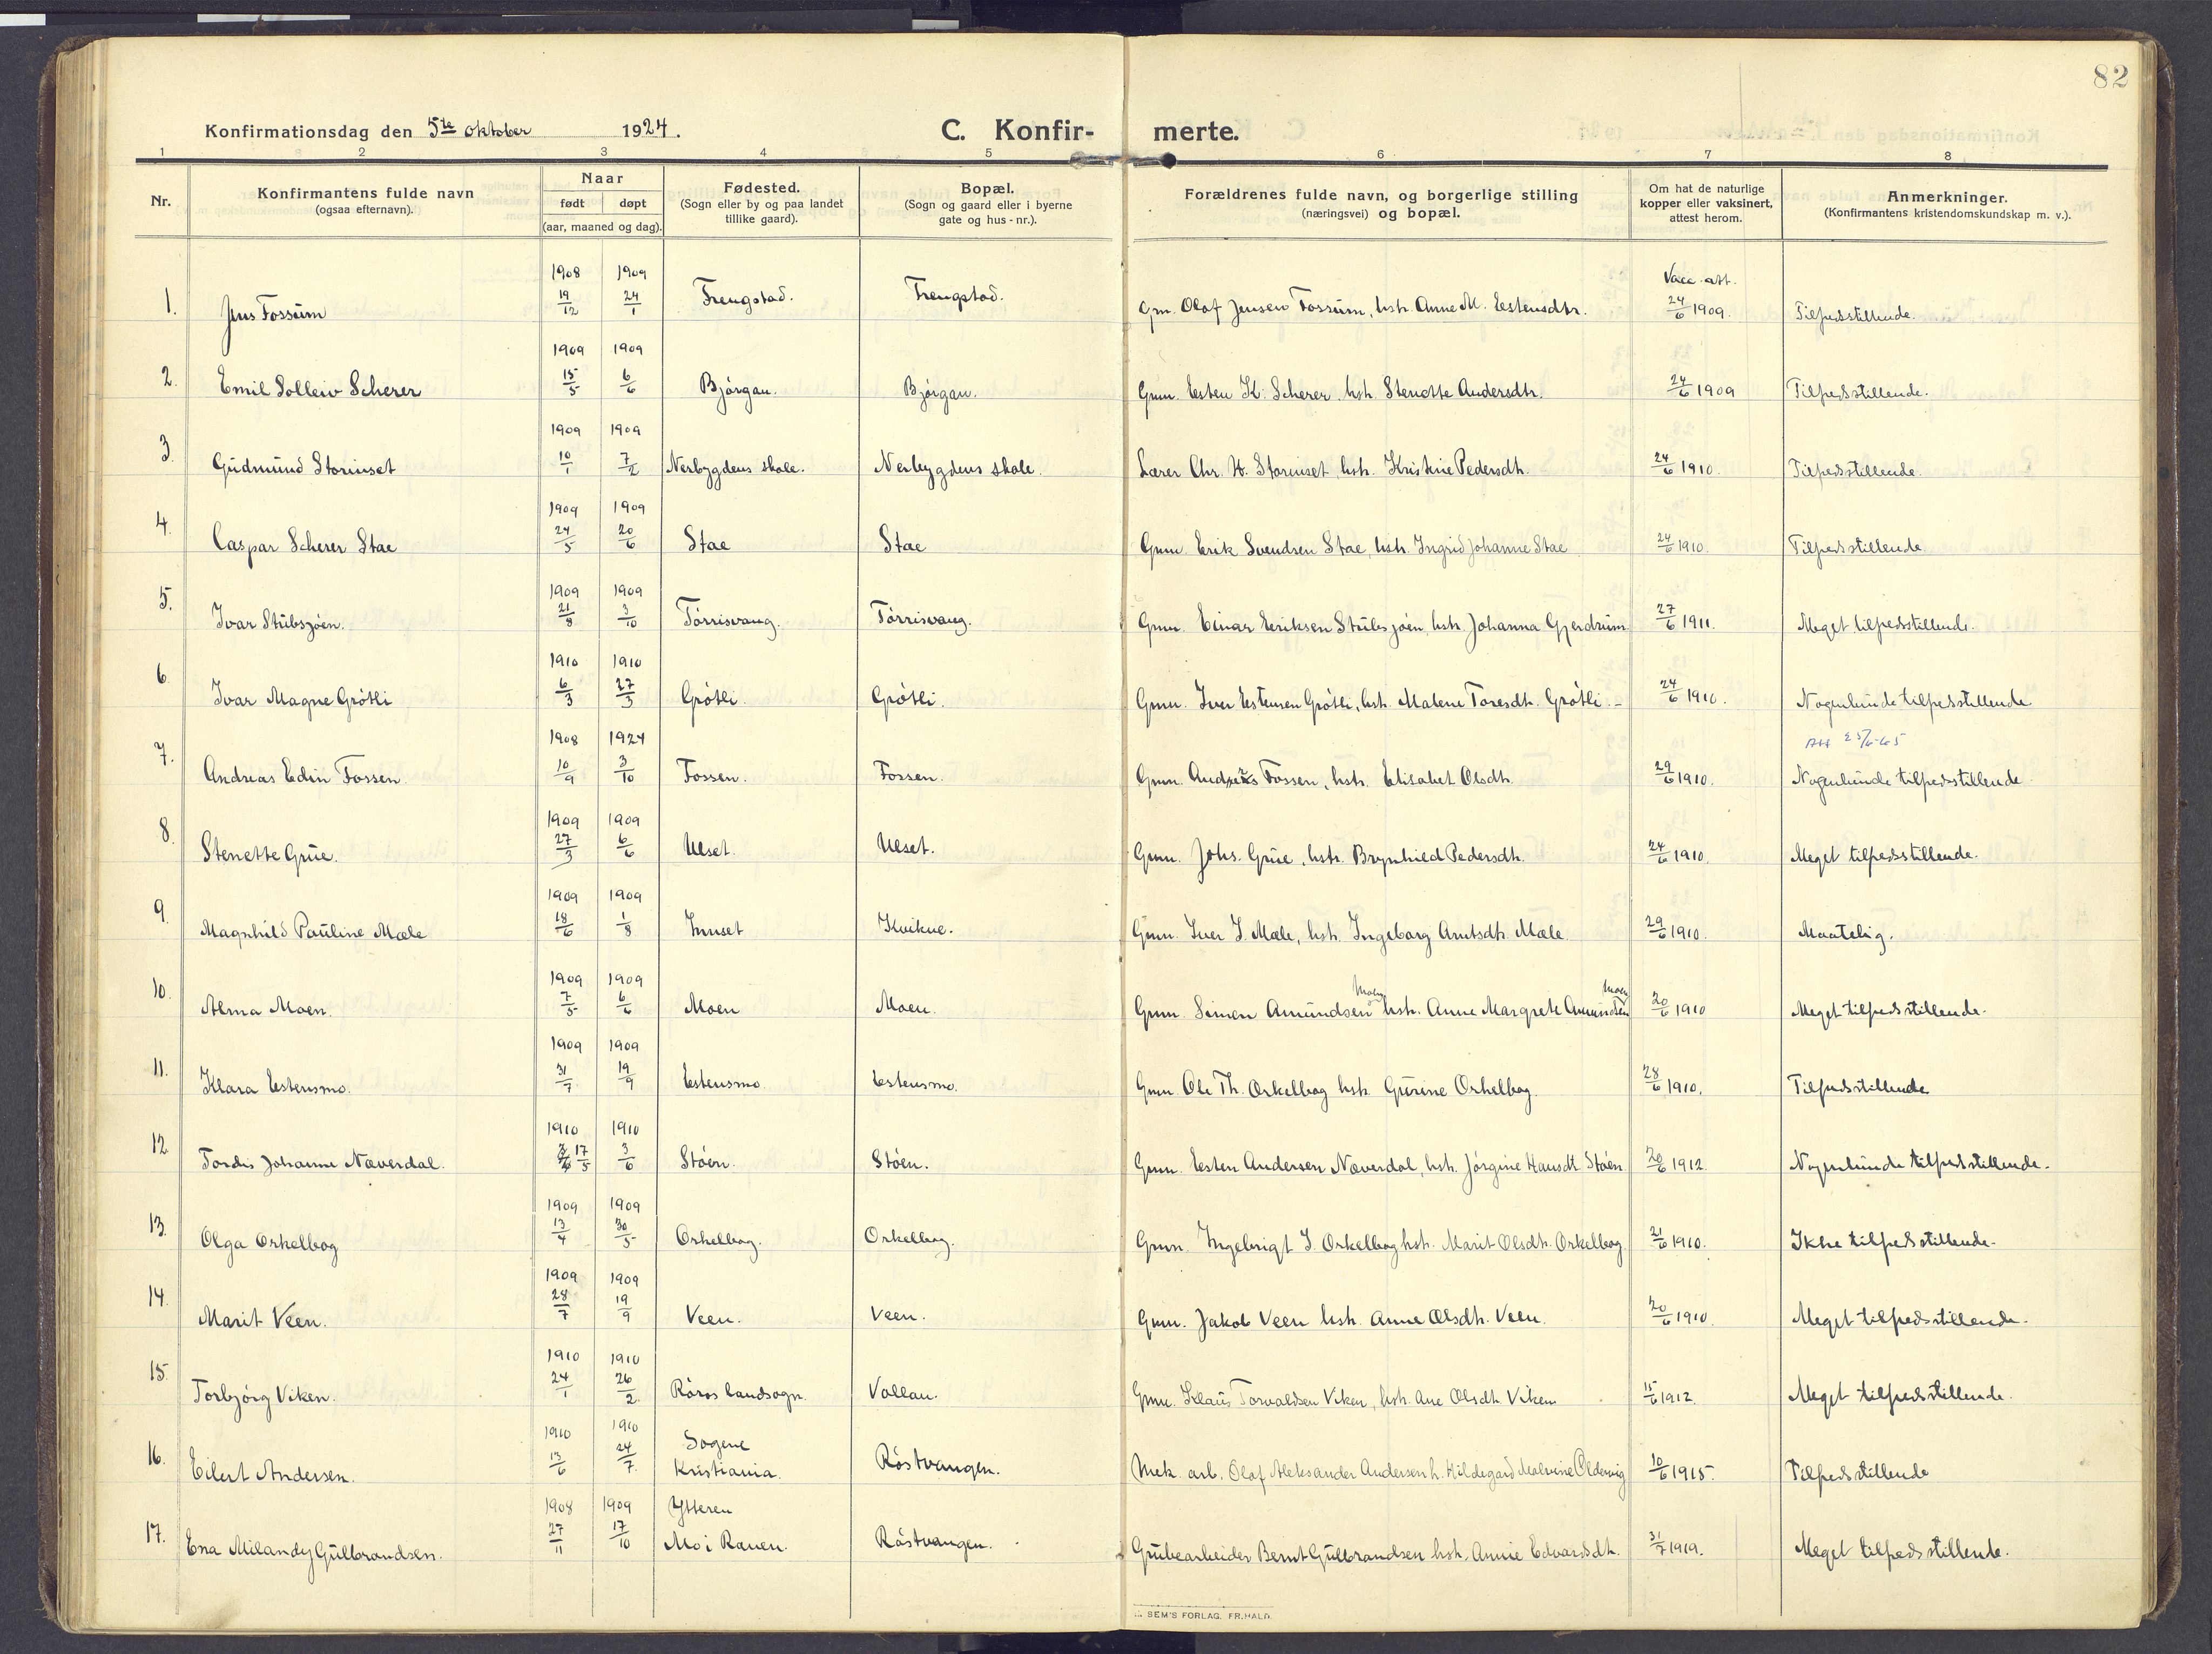 82
Konfirmationsdag den 5te oktober 1924.
C. Konfir- merte.
1 2 3 4 5 6 7 8
Nr.
Konfirmantens fulde navn
(ogsaa efternavn).
Naar
født døpt
(aar, maaned og dag).
Fødested.
(Sogn eller by og paa landet
tillike gaard).
Bopæl.
(Sogn og gaard eller i byerne
gate og hus-nr.).
Forældrenes fulde navn, og borgerlige stilling
(næringsvei) og bopæl.
Om hat de naturlige
kopper eller vaksinert,
attest herom.
Anmerkninger.
(Konfirmantens kristendomskundskap m. v.).
1908 1909 Vacc. att.
1. Jens Fossum 19/12 24/1 Frengstad. Frengstad. Gm. Olaf Jensen Fossum, hstr. Anne M. Estensdtr. 24/6 1909. Tilfredsstillende.
1909 1909
2. Emil Solleiv Scherer 15/5 6/6 Bjørgan. Bjørgan. Gmn. Esten K. Scherer, hstr. Stenette Andersdtr. 24/6 1909 Tilfredsstillende.
1909 1909
3. Gudmund Storinset 10/1 7/2 Nerbygdens skole. Nerbygdens skole. Lærer Chr. H. Storinset, hstr. Kristine Pedersdtr. 24/6 1910. Tilfredsstillende.
1909 1909
4. Caspar Scherer Stae 24/5 20/6 Stae Stae Gmn. Erik Svendsen Stae, hstr. Ingrid Johanne Stae 24/6 1910. Tilfredsstillende.
1909 1909
5. Ivar Stubsjøen. 21/8 3/10 Tørrisvang. Tørrisvang. Gmn. Einar Eriksen Stubsjøen, hstr. Johanna Gjerdrum 27/6 1911. Meget tilfredsstillende.
1910 1910
6. Ivar Magne Grøtli 6/3 27/3 Grøtli. Grøtli. Gmn. Iver Estensen Grøtli, hstr. Malene Toresdtr. Grøtli. 24/6 1910. Nogenlunde tilfredsstillende
1908 1924
7. Andreas Edin Fossen. 10/9 3/10 Fossen. Fossen. Gmn. Anders Fossen, hstr. Elisabet Olsdtr. 29/6 1910. Nogenlunde tilfredsstillende
1909 1909
8. Stenette Grue. 27/3 6/6 Ulset. Ulset. Gmn. Johs. Grue, hstr. Brynhild Pedersdtr. 24/6 1910. Meget tilfredsstillende.
1909 1909
9. Magnhild Pauline Mæle 18/6 1/8 Innset Kvikne. Gmn. Iver I. Mæle, hstr. Ingeborg Arntsdtr. Mæle. 29/6 1910. Maatelig.
1909 1909 Moen Moen
10. Alma Moen. 7/5 6/6 Moen Moen. Gmn. Simen Amundsen hstr. Anne Margrete Amundsen 20/6 1910 Meget tilfredsstillende.
1909 1909
11. Klara Estensmo. 31/7 19/9 Estensmo Estensmo. Gmn. Ole Th. Orkelbog hstr. Gurine Orkelbog. 28/6 1910. Tilfredsstillende
1910 1910
12 Tordis Johanne Næverdal. 17/5 3/6 Støen. Støen. Gmn. Esten Andersen Næverdal, hstr. Jørgine Hansdtr. Støen 20/6 1912. Nogenlunde tilfredsstillende.
1909 1909
13. Olga Orkelbog 13/4 30/5 Orkelbog. Orkelbog. Gmn. Ingebrigt I. Orkelbog hstr. Marit Olsdtr. Orkelbog. 21/6 1910. Ikke tilfredsstillende.
1909 1909
14. Marit Veen. 28/7 19/9 Veen. Veen. Gmn. Jakob Veen hstr. Anne Olsdtr. Veen. 20/6 1910. Meget tilfredsstillende.
1910 1910
15. Torbjørg Viken. 24/1 26/2. Røros landsogn. Vollan. Gmn. Klaus Torvaldsen Viken, hstr. Ane Olsdtr. Viken 15/6 1912. Meget tilfredsstillende.
1910 1910 Sogene
16. Eilert Andersen. 13/6 24/7. Kristiania. Røstvangen. Mek. arb. Olaf Aleksander Andersen h. Hildegard Malvine Oldervig 10/6 1915. Tilfredsstillende
1908 1909 Ytteren
17. Ena Milandy Gulbrandsen. 27/11 17/10 Mo i Ranen. Røstvangen. Grubearbeider Bernt Gulbrandsen hstr. Annie Edvardsdtr. 31/7 1919. Meget tilfredsstillende.
SEM'S FORLAG. FR.HALD.